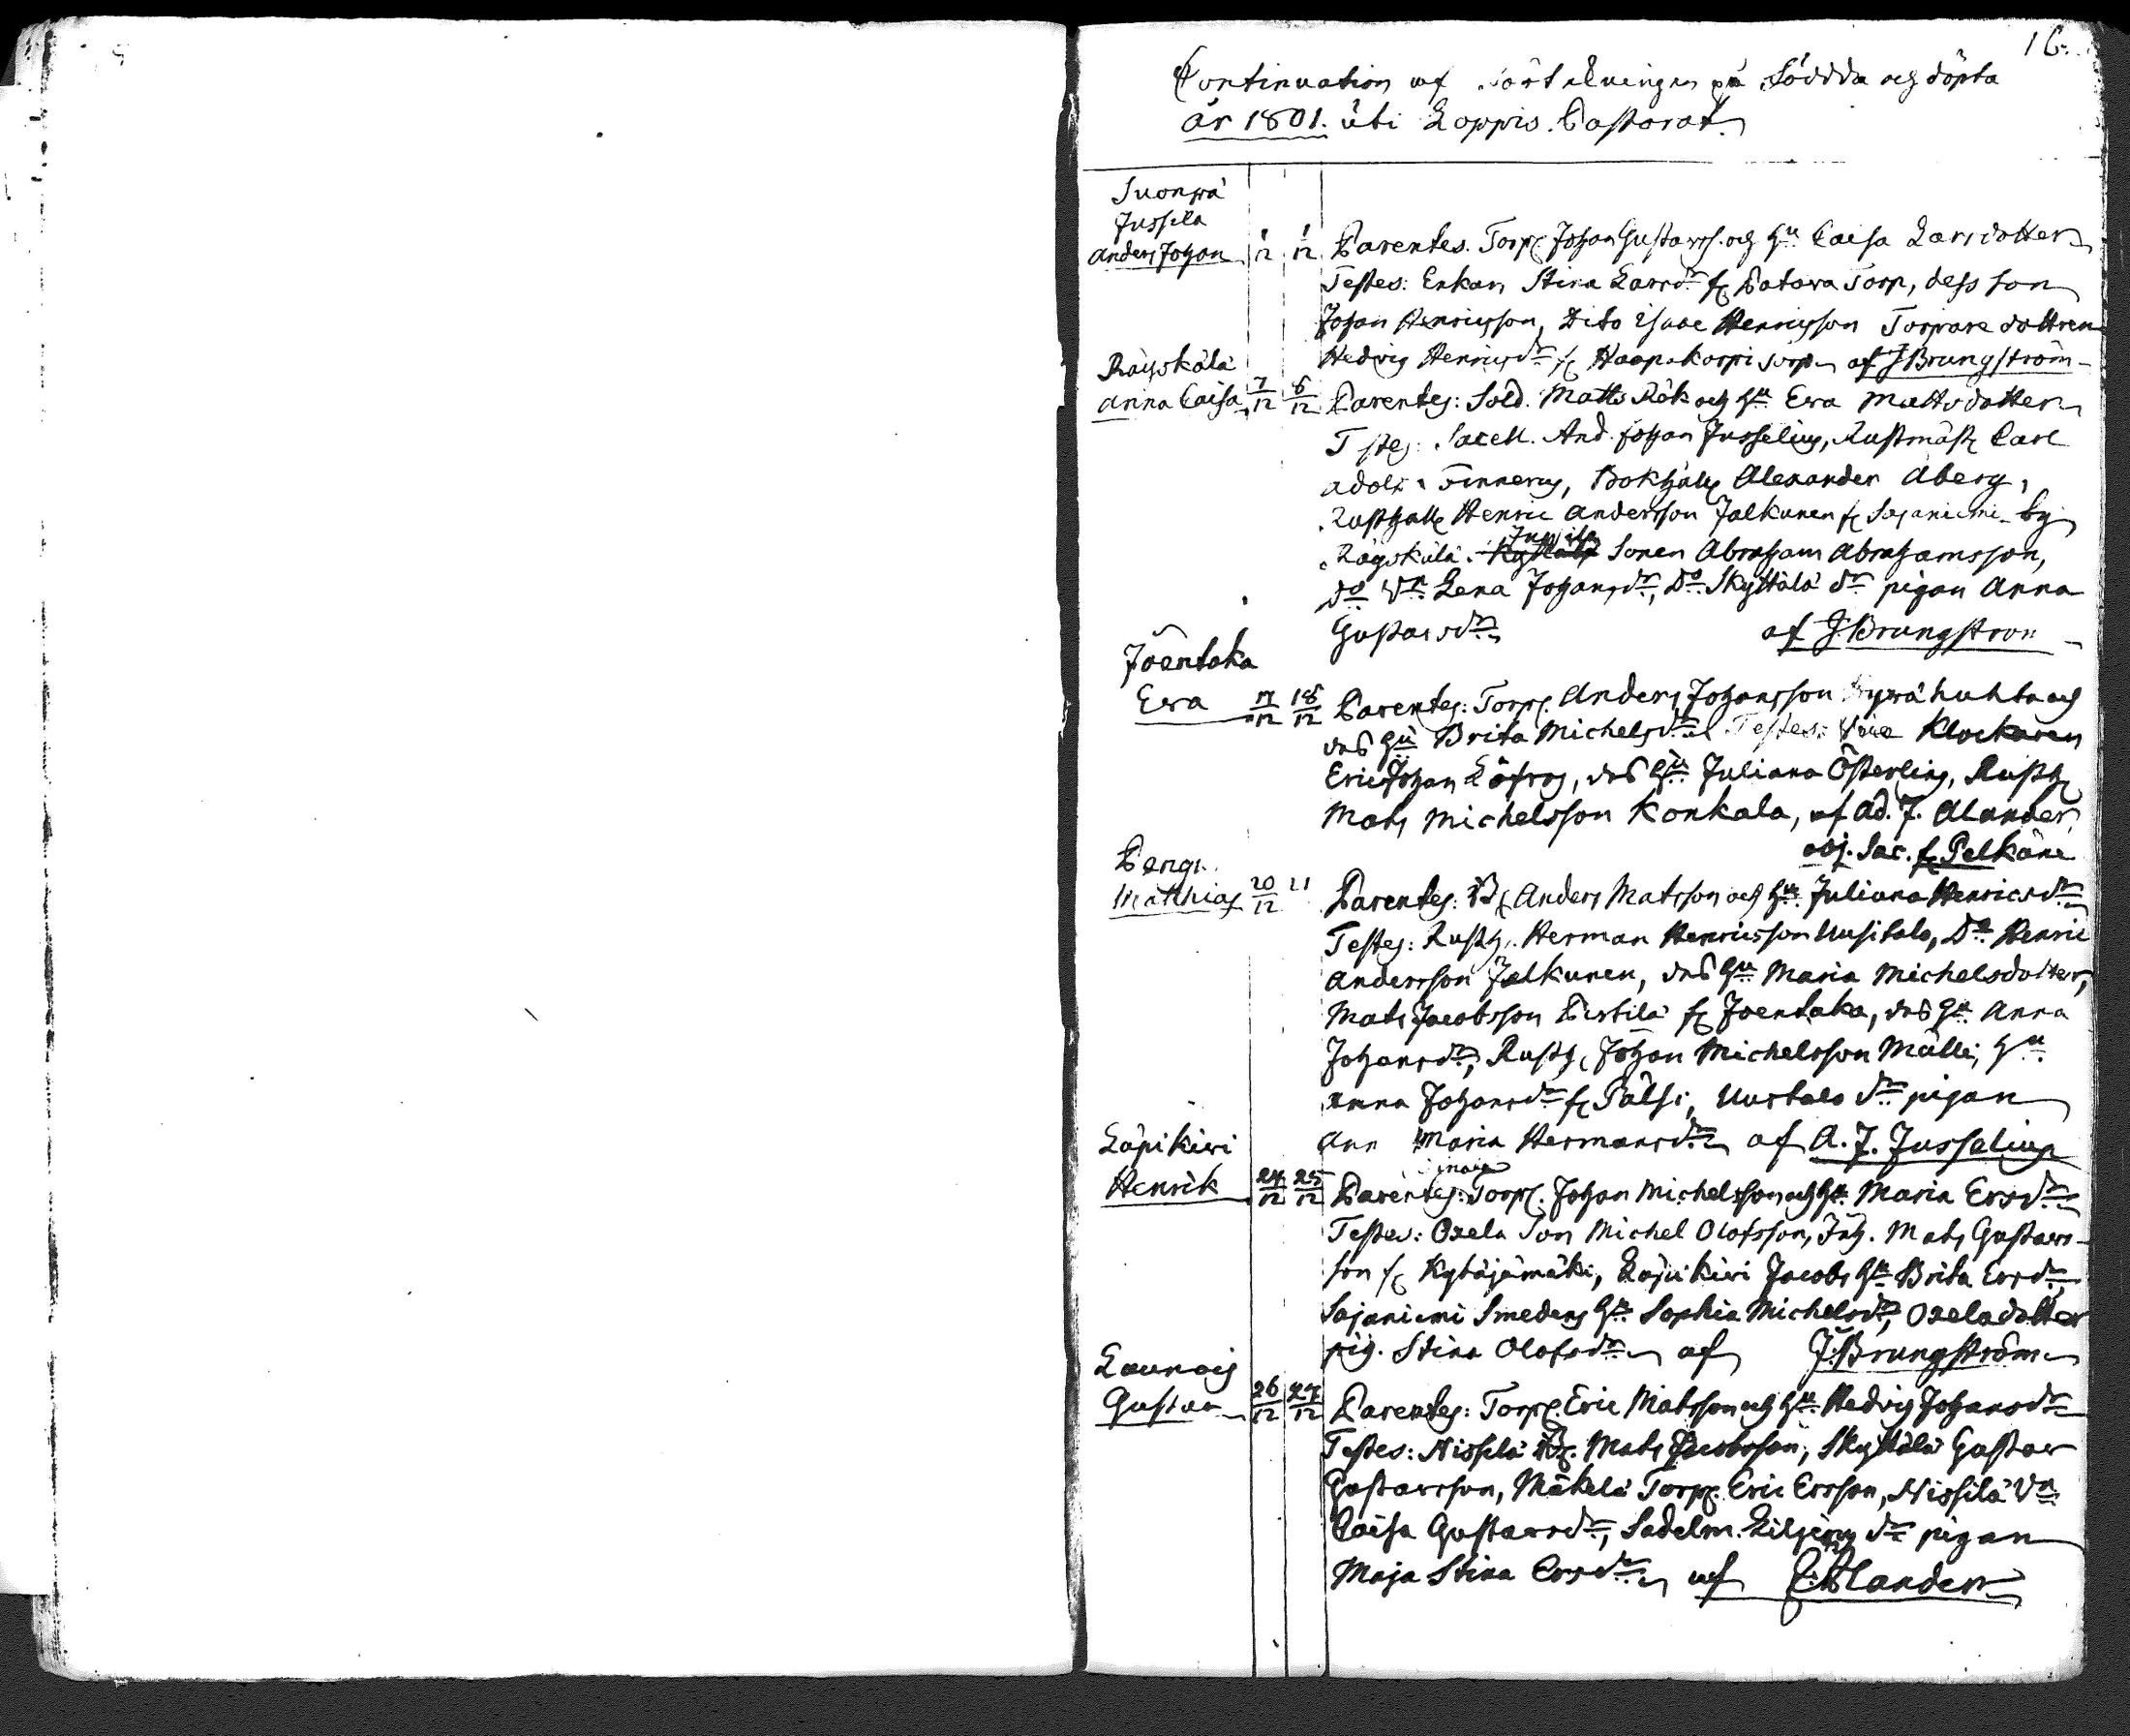 16.
Continuation af Förtekningen på Födda och döpta
år 1801. uti Loppis Pastorat.
Suonpä
Jussila
Anders Johan 1/12 1/12 Parentes. Torp. Johan Gustafss. och hu. Caisa Larsdotter
Testes: Enkan Stina Larsdr. fr. Patava Torp, dess son
Johan Henricsson, Dito Isaac Henricsson Torpare dottren
Hedvig Henricsdr. fr. Haapakorpi torp af J Brungström
Räyskälä
Anna Caisa 7/12 8/12 Parentes: Sold. Matts Rök och hu. Eva Mattsdotter
Testes: Sacell. And. Johan Jusselius, Rustmäst. Carl
Adolf Finnerus, Bokhåll. Alexander Åberg,
Rusthåll. Henric Andersson Jalkanen fr. Sajaniemi by
Räyskälä Sonen Abraham Abrahamsson,
do Dr. Lena Johansdr., Do. Skyttälä dr. pigan Anna
Gustavsdr. af J. Brungström
Joentaka
Eva 17/12 18/12 Parentes: Torp. Anders Johansson huhta och
des hu. Brita Michelsdr. Testes: Klockaren
Eric Johan Löfroos, des hu. Juliana Österling, Rusth.
Mats Michelsson Konkala, af Ad. J. Alander
adj. Sac. fr. Pelkäne
Matthias 20/12 21 Parentes: Anders Matsson och hu. Juliana Henricsdr.
Testes: Rusth. Herman Henricsson Uusitalo, Do. Henric
Andersson Jalkanen, des hu. Maria Michelsdotter,
Mats Jacobsson Pertilä fr. Joentaka, des hu. Anna
Johansdr., Rusth. Johan Michelsson Mälli, hu.
Anna Johansdr. fr. Pälsi, Uustalo dr. pigan
Ann Maria Hermansdr. af A. J. Jusselius
Läpikivi
Henrik 24/12 25/12 Parentes: Torp. Johan Michelsson och hu. Maria Ersdr.
Testes: Oxela Son Michel Olofsson, Inh. Mats Gustavs-
son fr. Kytäjämäki, Läpikivi Jacobs hu. Brita Ersdr.
Sajaniemi Smedens hu. Sophia Michelsdr., Oxela dotter
pig. Stina Olofsdr. af J. Brungström
Launois
Gustav 26/12 27/12 Parentes: Torp. Eric Matsson och hu. Hedvig Johansdr.
Testes: Nissilä Mats Jacobsson, Skyttälä Gustav
Gustavsson, Mäkelä Torp. Eric Ersson, Nissilä Dr.
Caisa Gustavsdr., Sadelm. Liljerus dr. pigan
Maja Stina Ersdr. af Elander